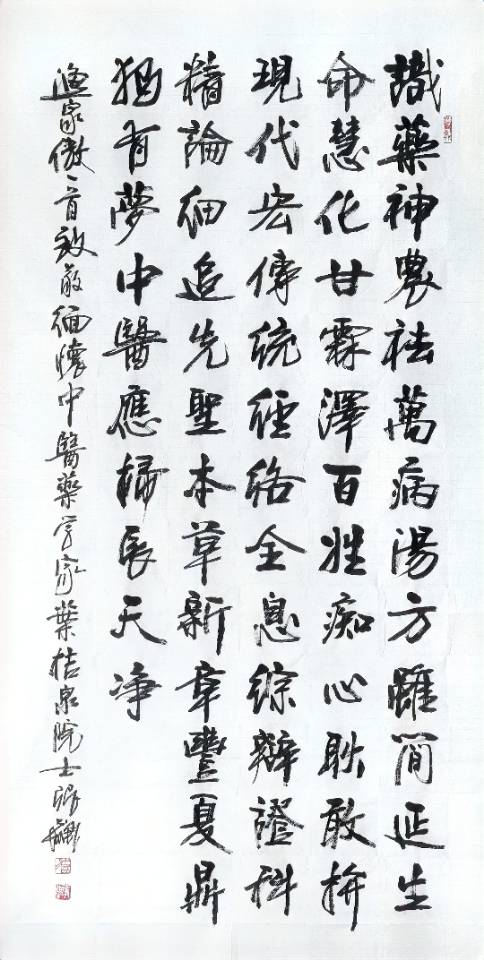 識藥神農祛萬病湯方雖簡延生
命慧化甘霖澤百姓痴心耿敢拚
現代宏傳統經絡全息綜辯證科
精論細追先聖本草新章豐夏鼎
猶有夢中醫應掃長天净
漁家傲一首致敬緬懷中醫藥学家葉桔泉院士